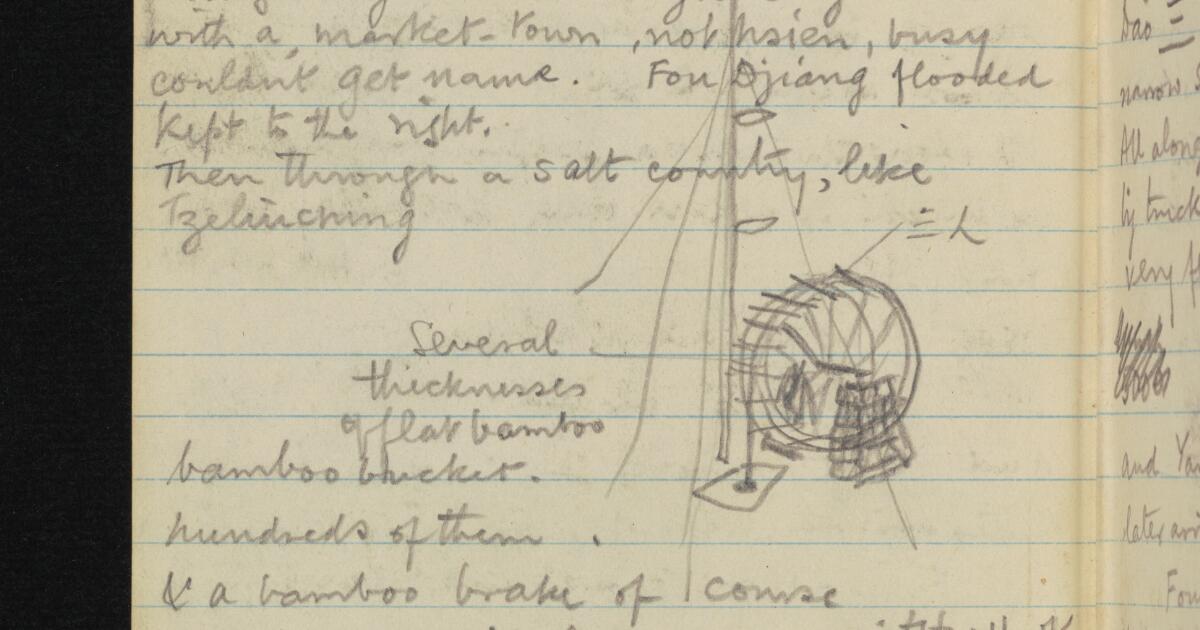 with a market-town, not hsien, busy
couldnt get name. Fou Djiang flooded
kept to the right.
Then through a salt country, like
Tzeliuching
三人
Several
thicknesses
of flat bamboo
bamboo bucket.
hundreds of them.
& a bamboo brake of course
Dao =
narrow
All along
by truck
very
and Ya
later
Fou